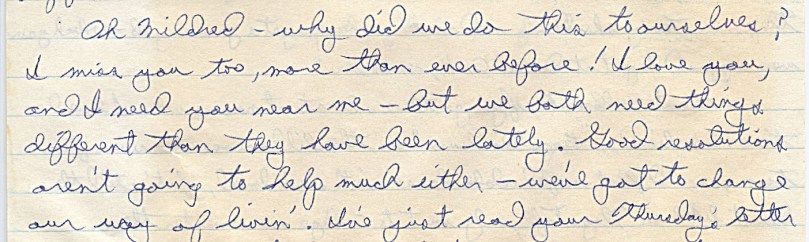 Oh Mildred - why did we do this to ourselves?
I miss you too, more than ever before! I love you,
and I need you near me - but we both need things
different than they have been lately. Good resolutions
aren't going to help much either - we've got to change
our way of livin'. I've just read your Thursday's letter